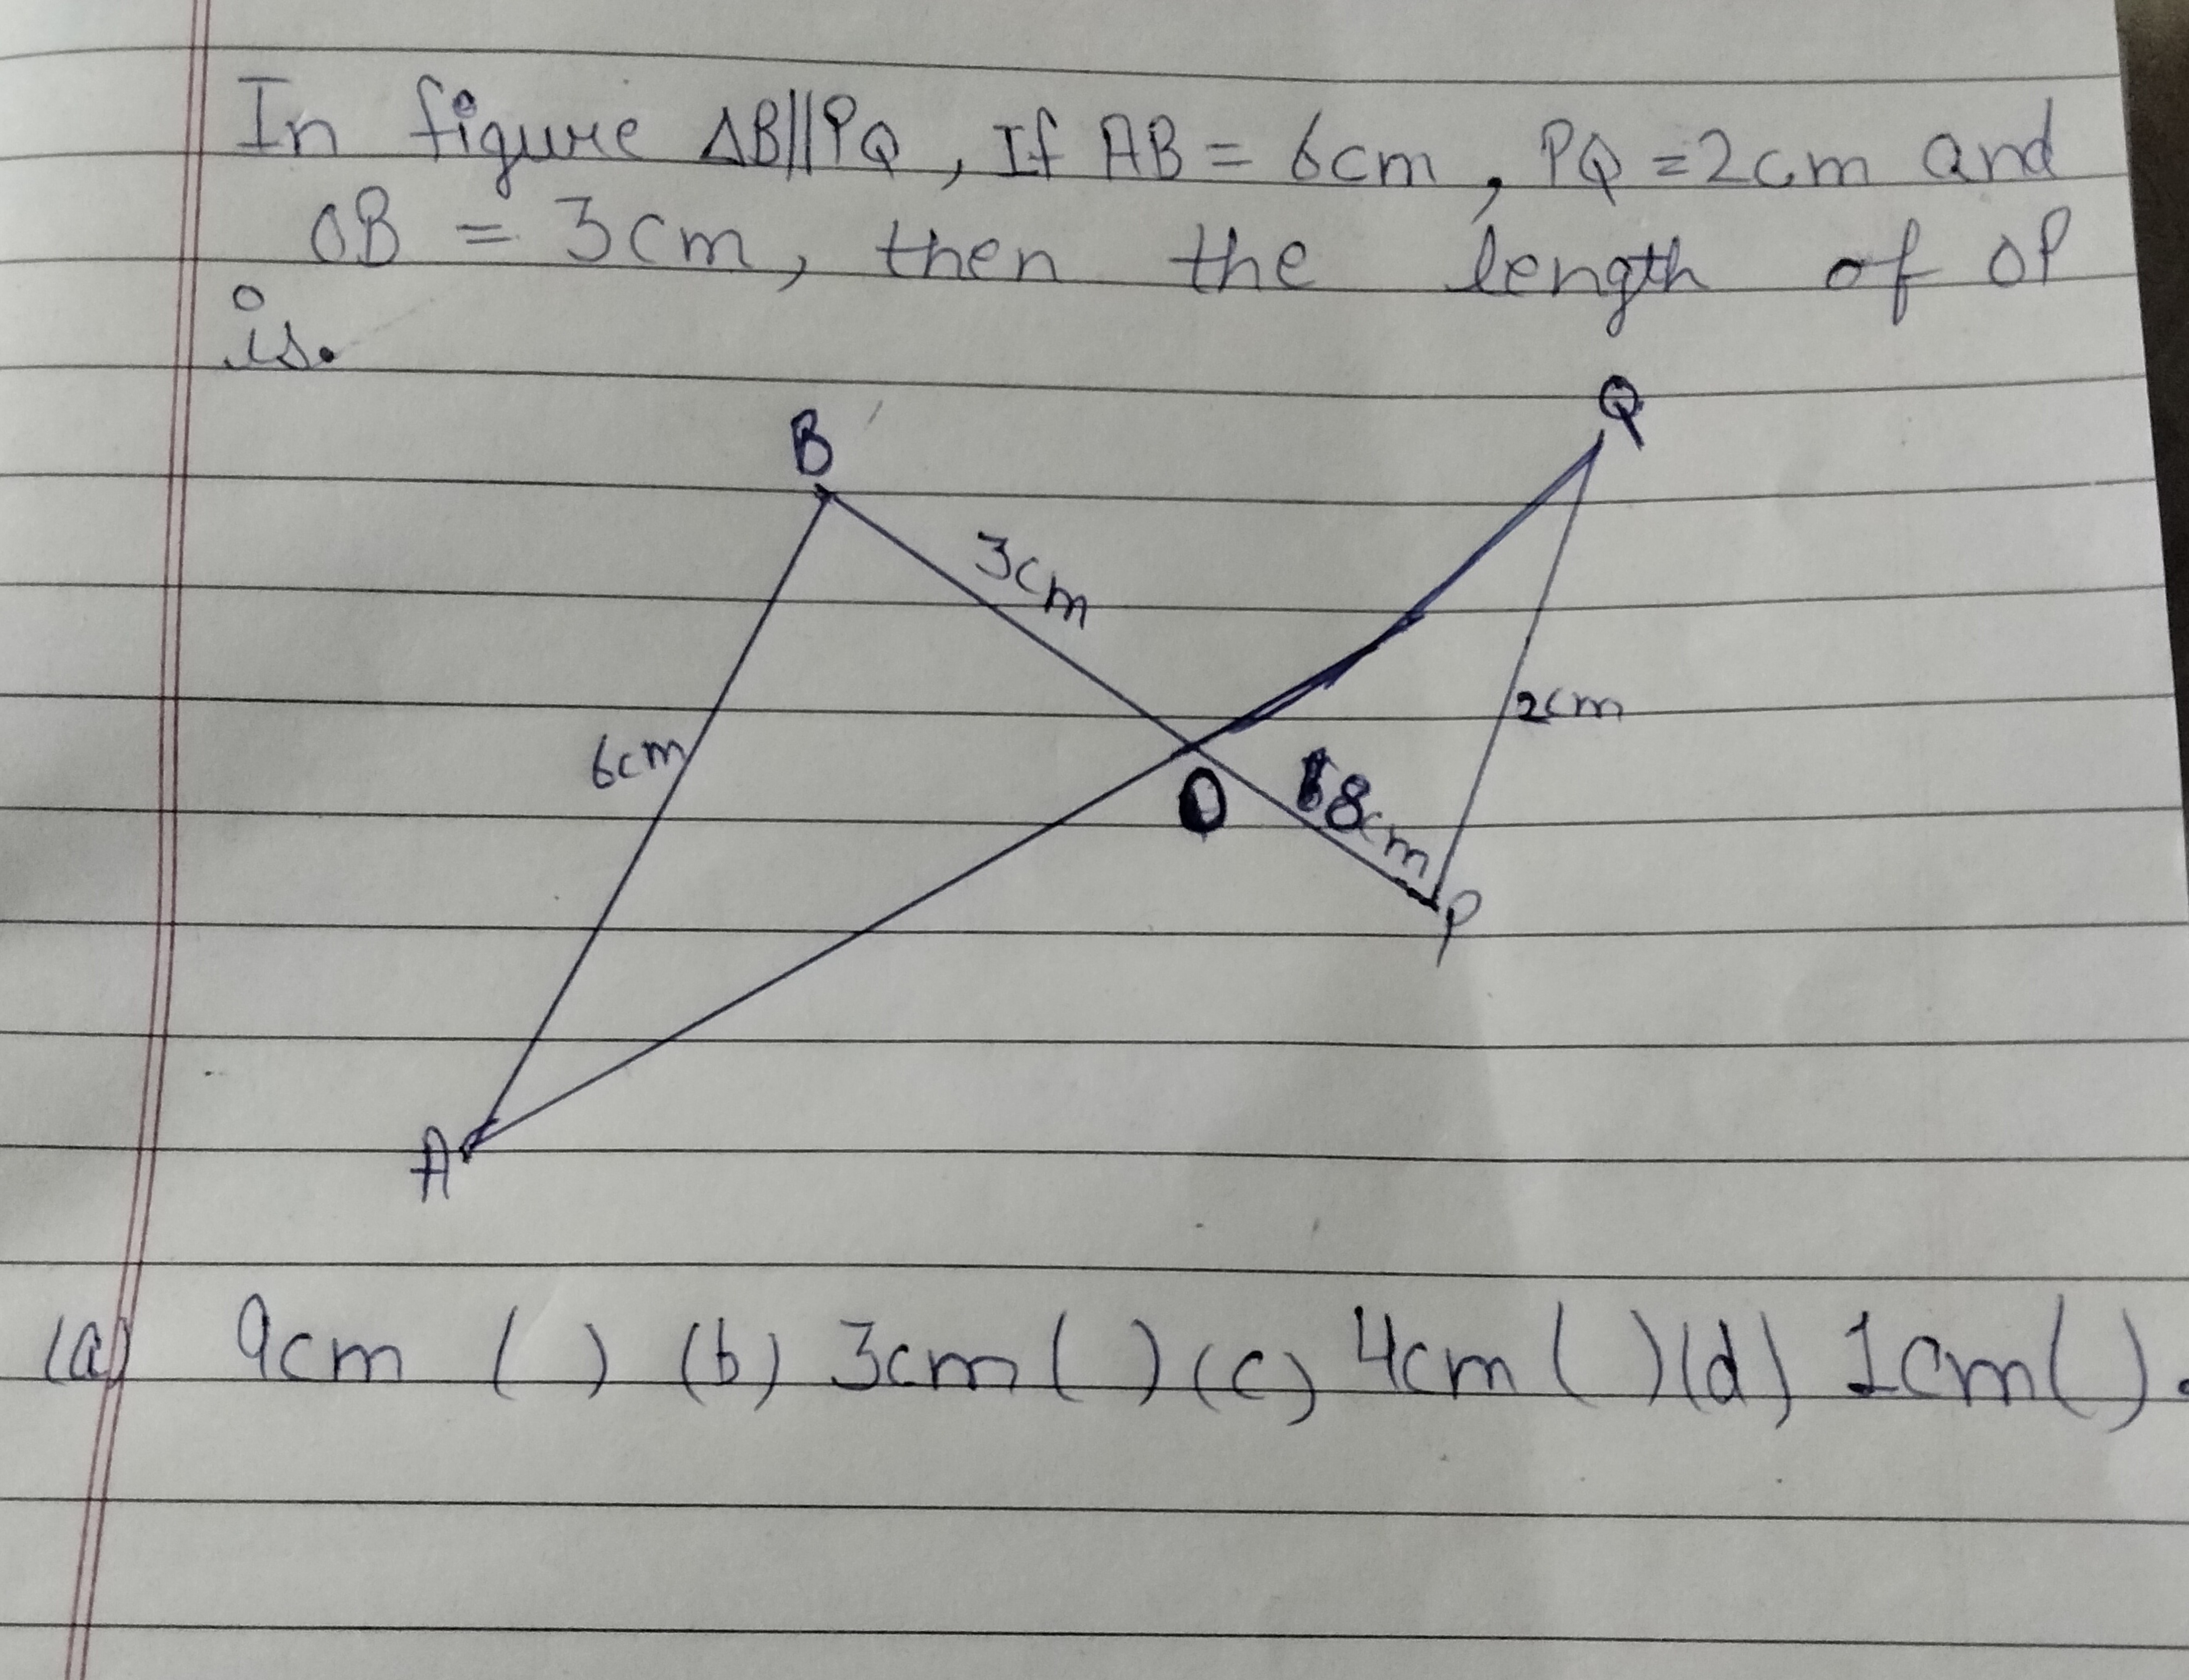 In figure ΔB||PQ, If AB = 6cm, PQ = 2cm and
OB = 3cm, then the length of OP
is.
B
Q
3cm
6cm
2cm
O
8cm
P
A
(a) 9cm ( ) (b) 3cm ( ) (c) 4cm ( ) (d) 1cm ( ).